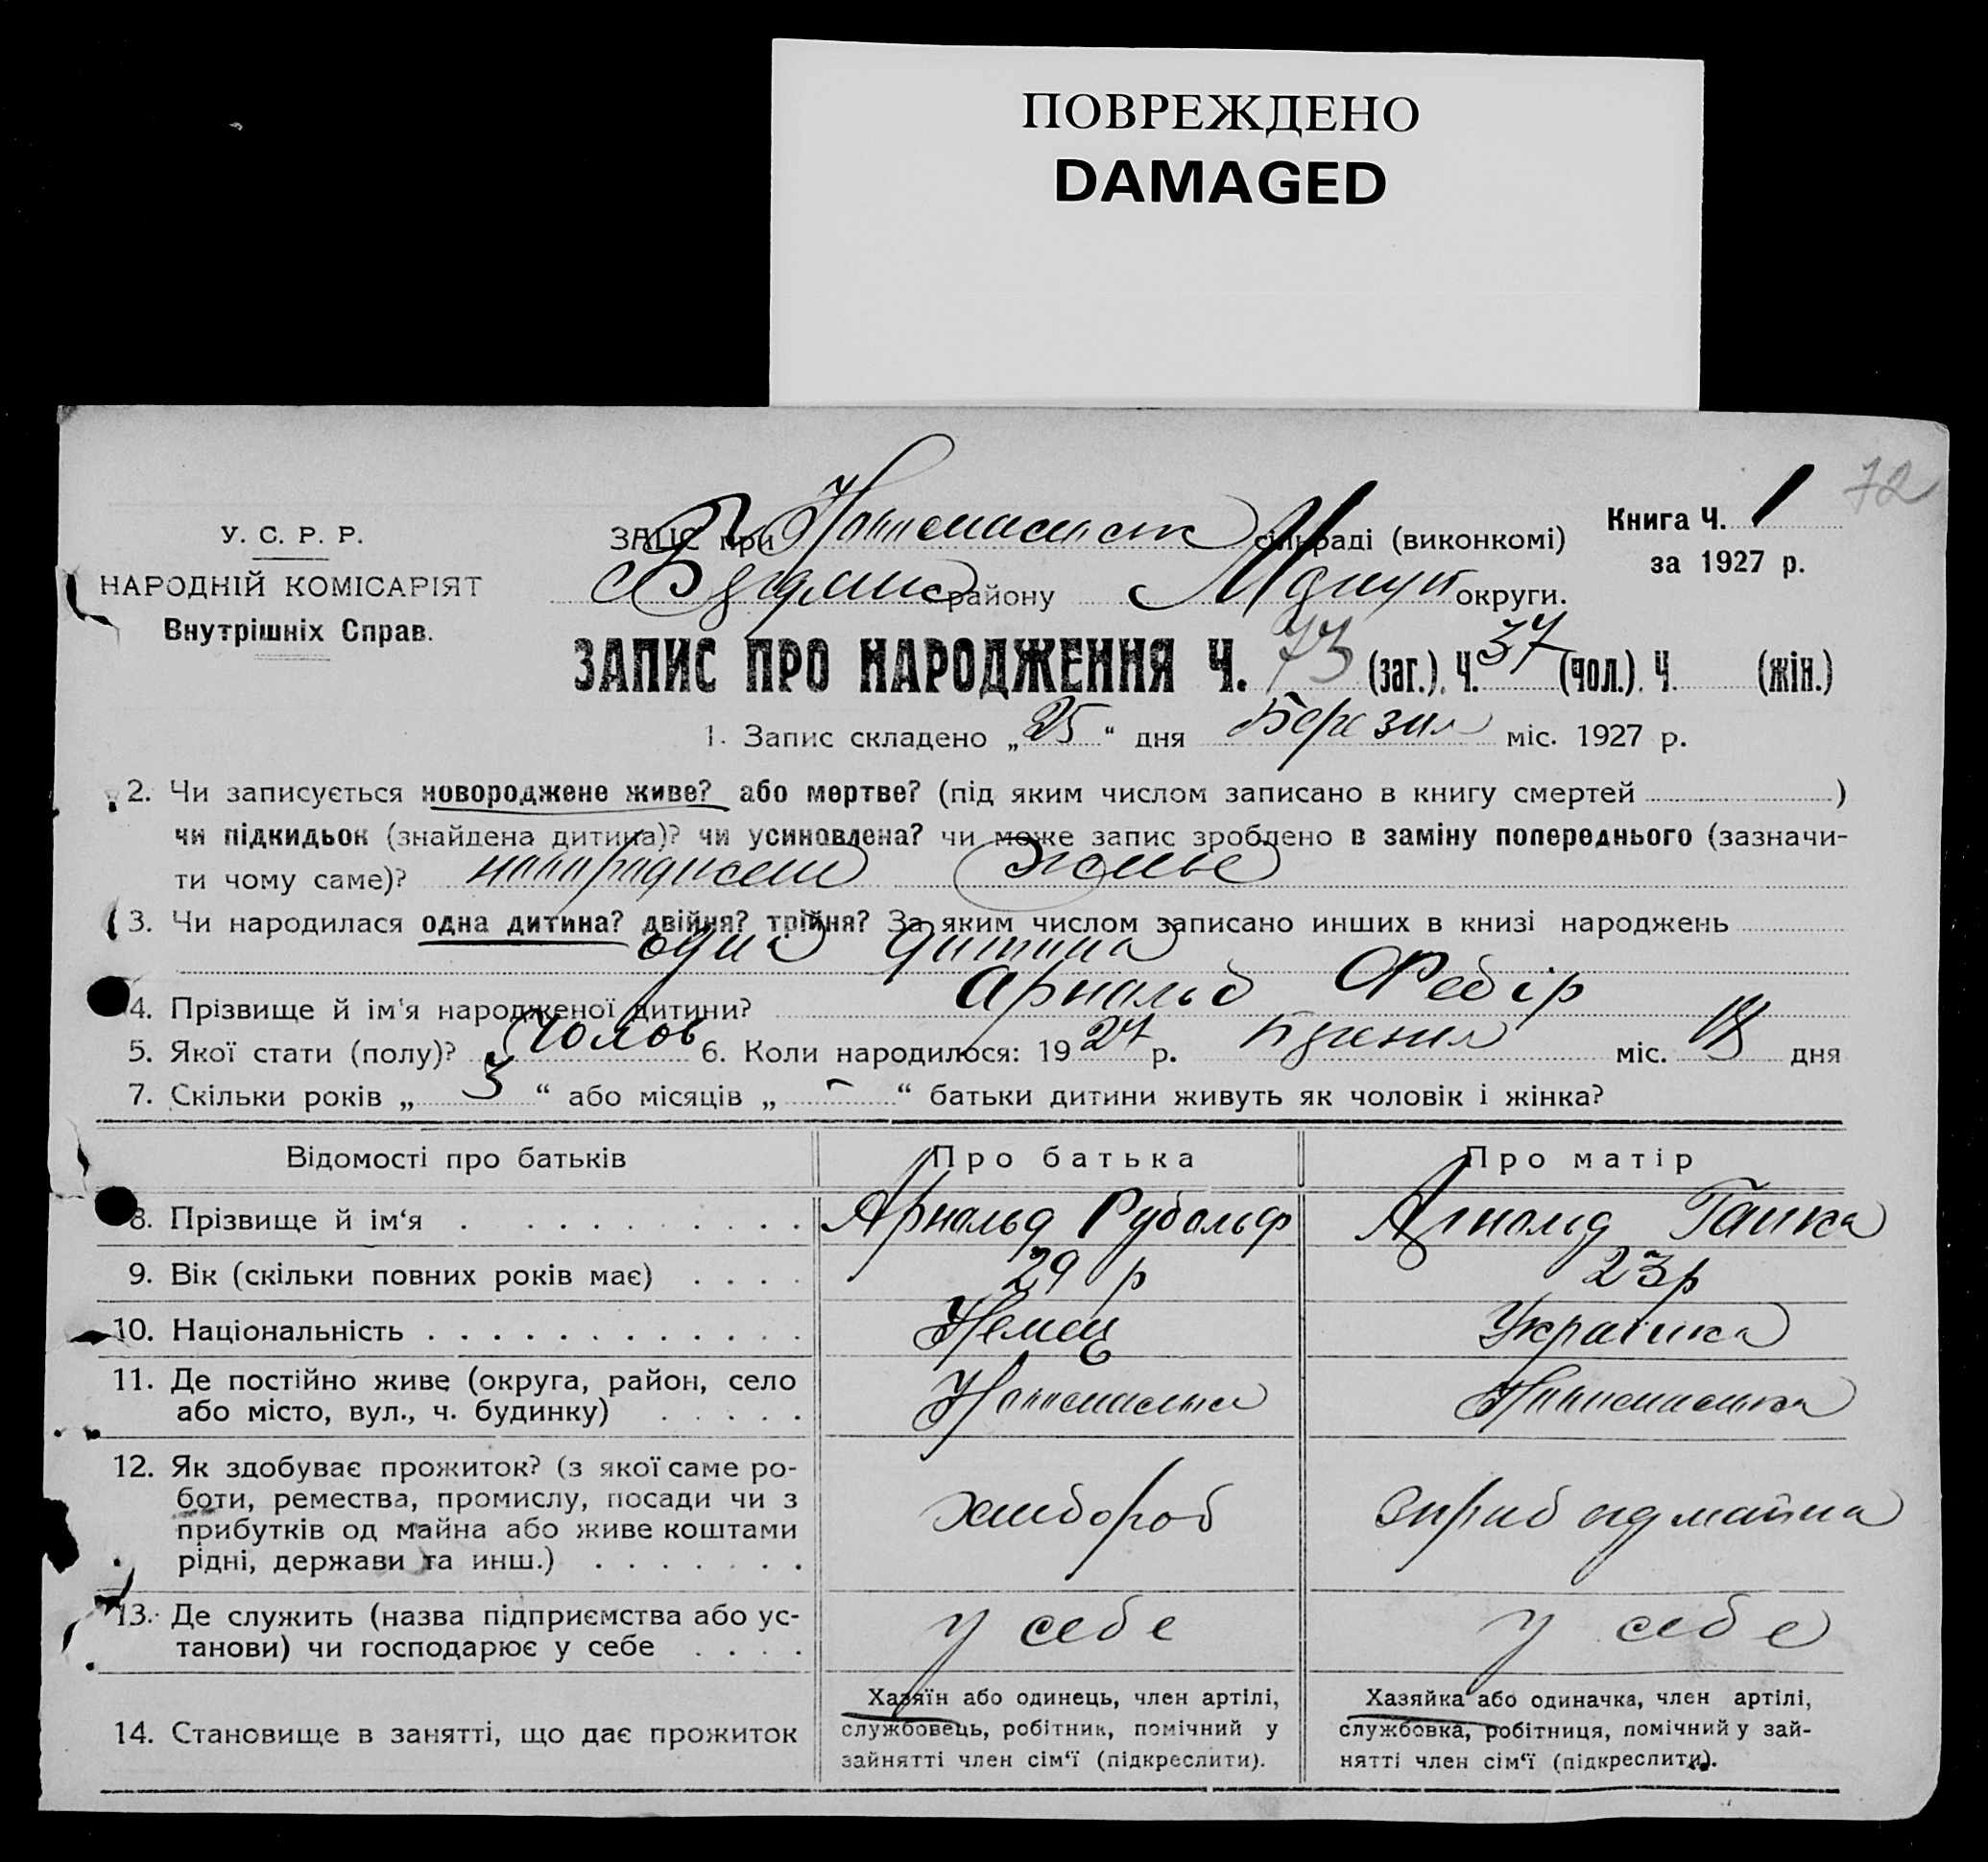 ПОВРЕЖДЕНО
DAMAGED
72
У. С. Р. Р.
НАРОДНІЙ КОМІСАРІЯТ
Внутрішніх Справ.
ЗАГС при сільраді (виконкомі)
району округи.
Книга Ч. 1
за 1927 р.
ЗАПИС ПРО НАРОДЖЕННЯ Ч. 73 (заг.). Ч. 37 (чол.). Ч. (жін.)
1. Запис складено „25“ дня Березня міс. 1927 р.
2. Чи записується новороджене живе? або мертве? (під яким числом записано в книгу смертей )
чи підкидьок (знайдена дитина)? чи усиновлена? чи може запис зроблено в заміну попереднього (зазначи-
ти чому саме)? живе
3. Чи народилася одна дитина? двійня? трійня? За яким числом записано инших в книзі народжень
одна дитина
4. Прізвище й ім'я народженої дитини? Арнольд Федір
5. Якої стати (полу)? Чолов 6. Коли народилося: 1927 р. міс. 18 дня
7. Скільки років „3“ або місяців „-“ батьки дитини живуть як чоловік і жінка?
Відомості про батьків Про батька Про матір
8. Прізвище й ім'я Арнольд Рудольф Арнольд Ганка
9. Вік (скільки повних років має) 29 р 23 р
10. Національність Немец Українка
11. Де постійно живе (округа, район, село
або місто, вул., ч. будинку)
12. Як здобуває прожиток? (з якої саме ро-
боти, ремества, промислу, посади чи з
прибутків од майна або живе коштами
рідні, держави та инш.) хлибороб
13. Де служить (назва підприємства або ус-
танови) чи господарює у себе у себе у себе
14. Становище в занятті, що дає прожиток
Хазяїн або одинець, член артілі,
службовець, робітник, помічний у
зайнятті член сім'ї (підкреслити).
Хазяйка або одиначка, член артілі,
службовка, робітниця, помічний у зай-
нятті член сім'ї (підкреслити).